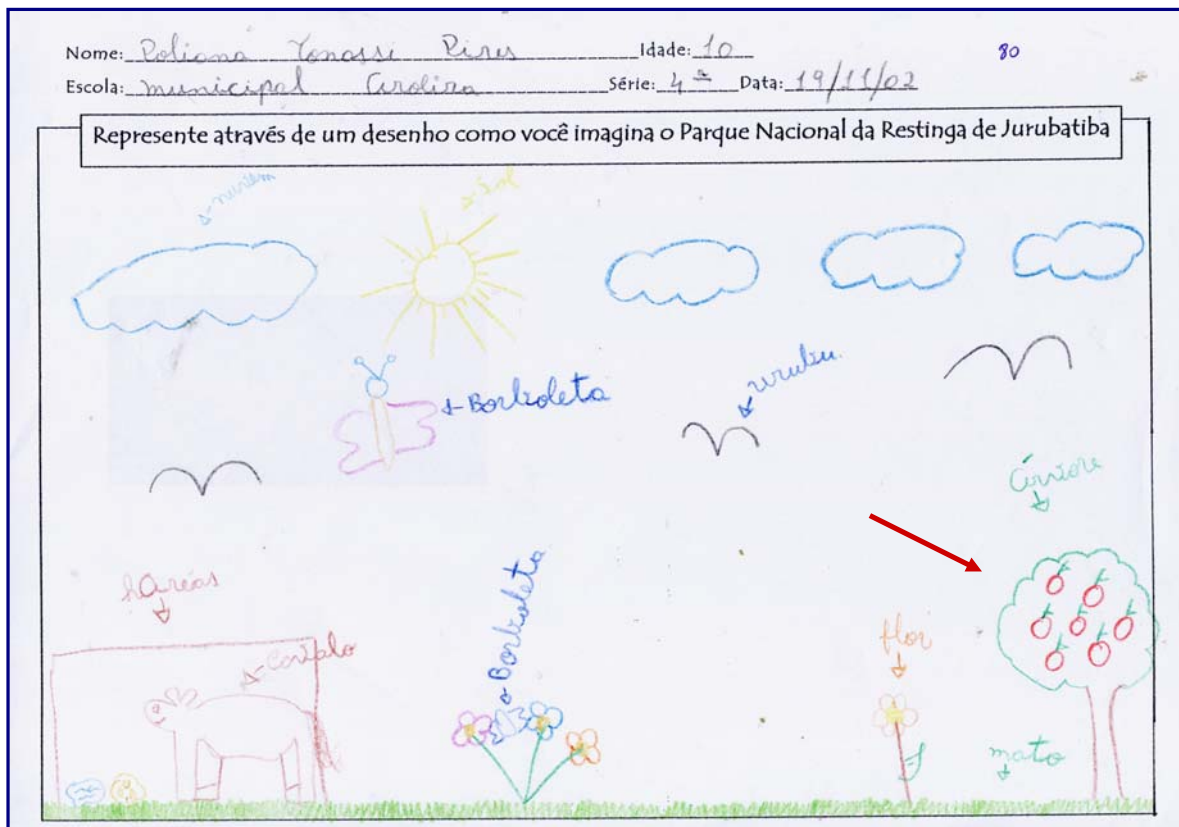 Nome: Poliana Tonassi Pires Idade: 10
80
Escola: municipal Carolina Série: 4ª Data: 19/11/02
Represente através de um desenho como você imagina o Parque Nacional da Restinga de Jurubatiba
nuvem
sol
Borboleta
urubu
árvore
Borboleta
flor
mato